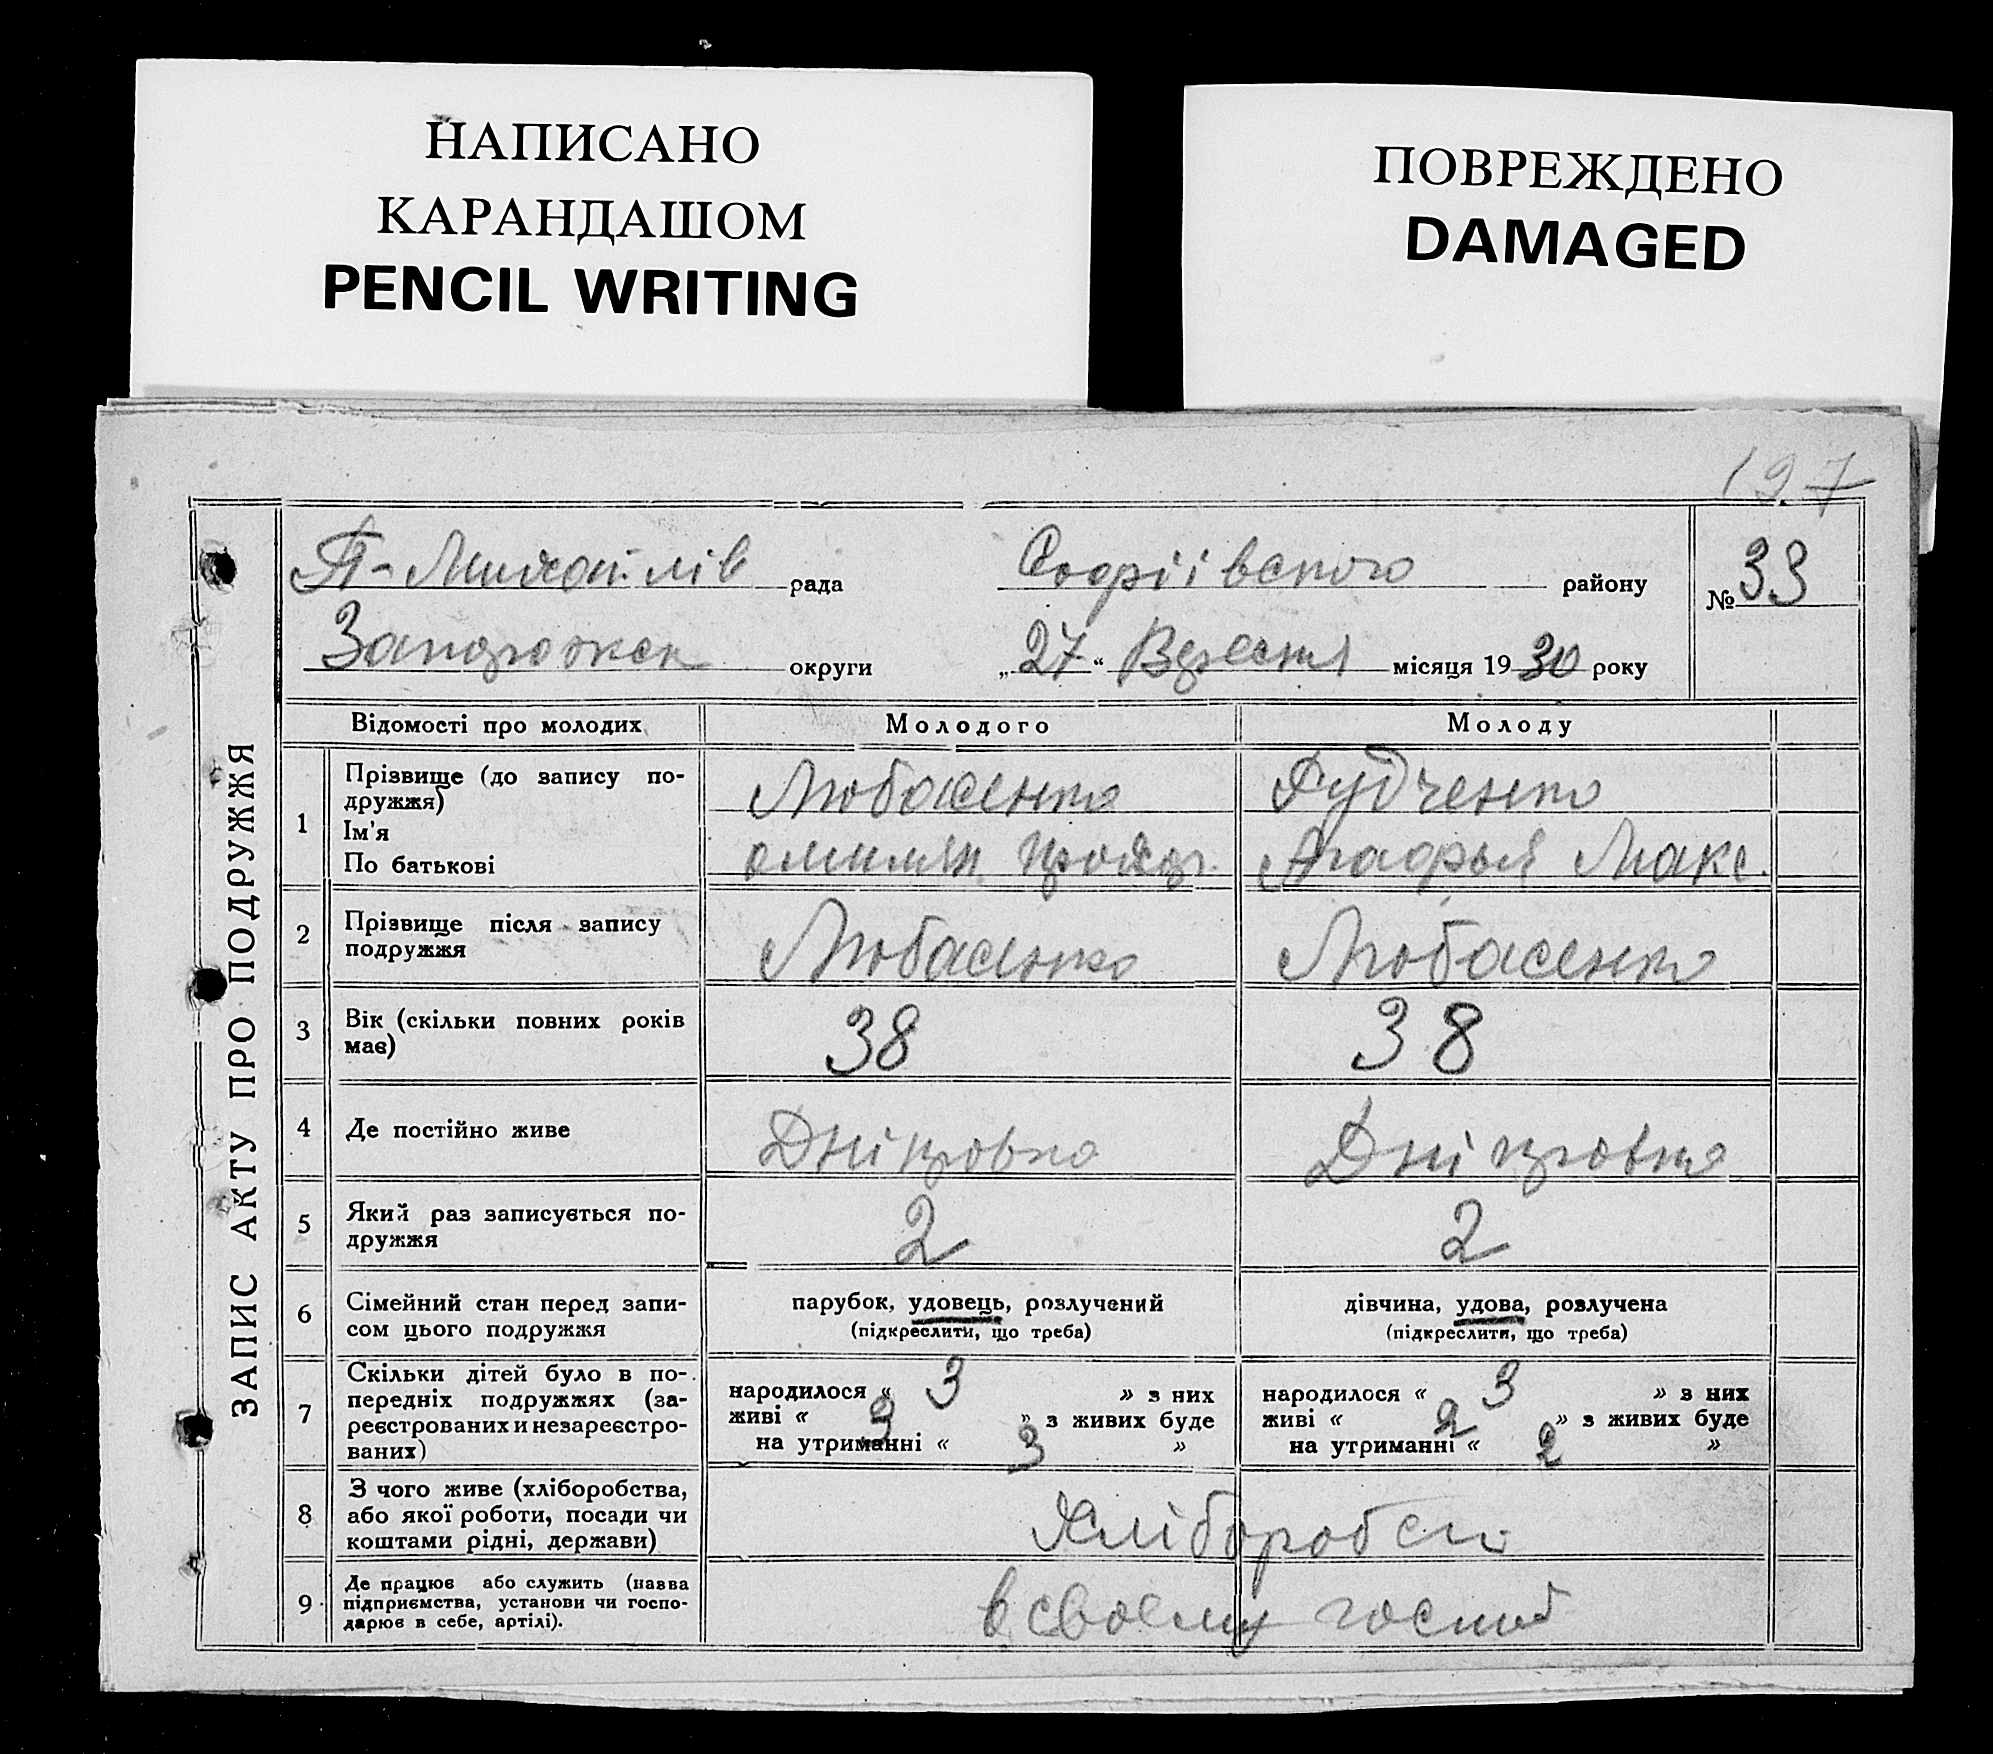 НАПИСАНО
КАРАНДАШОМ
PENCIL WRITING
ПОВРЕЖДЕНО
DAMAGED
197
ЗАПИС АКТУ ПРО ПОДРУЖЖЯ
П-Михайлів рада Софіївського району № 33
Запорожск округи „27“ Вересня місяця 1930 року
Відомості про молодих Молодого Молоду
1 Прізвище (до запису по-
дружжя)
Ім'я
По батькові
Любасенко Рудченко
Агафья Макс.
2 Прізвище після запису
подружжя
Любасенко Любасенко
3 Вік (скільки повних років
має)
38 38
4 Де постійно живе Дніпровка Дніпровка
5 Який раз записується по-
дружжя
2 2
6 Сімейний стан перед запи-
сом цього подружжя
парубок, удовець, розлучений
(підкреслити, що треба)
дівчина, удова, розлучена
(підкреслити, що треба)
7 Скільки дітей було в по-
передніх подружжях (за-
реєстрованих и незареєстро-
ваних)
народилося « 3 » з них
живі « 3 » з живих буде
на утриманні « 3 »
народилося « 3 » з них
живі « 2 » з живих буде
на утриманні « 2 »
8 З чого живе (хліборобства,
або якої роботи, посади чи
коштами рідні, держави)
Хліборобси
9 Де працює або служить (назва
підприємства, установи чи госпо-
дарює в себе, артілі).
в своему господ